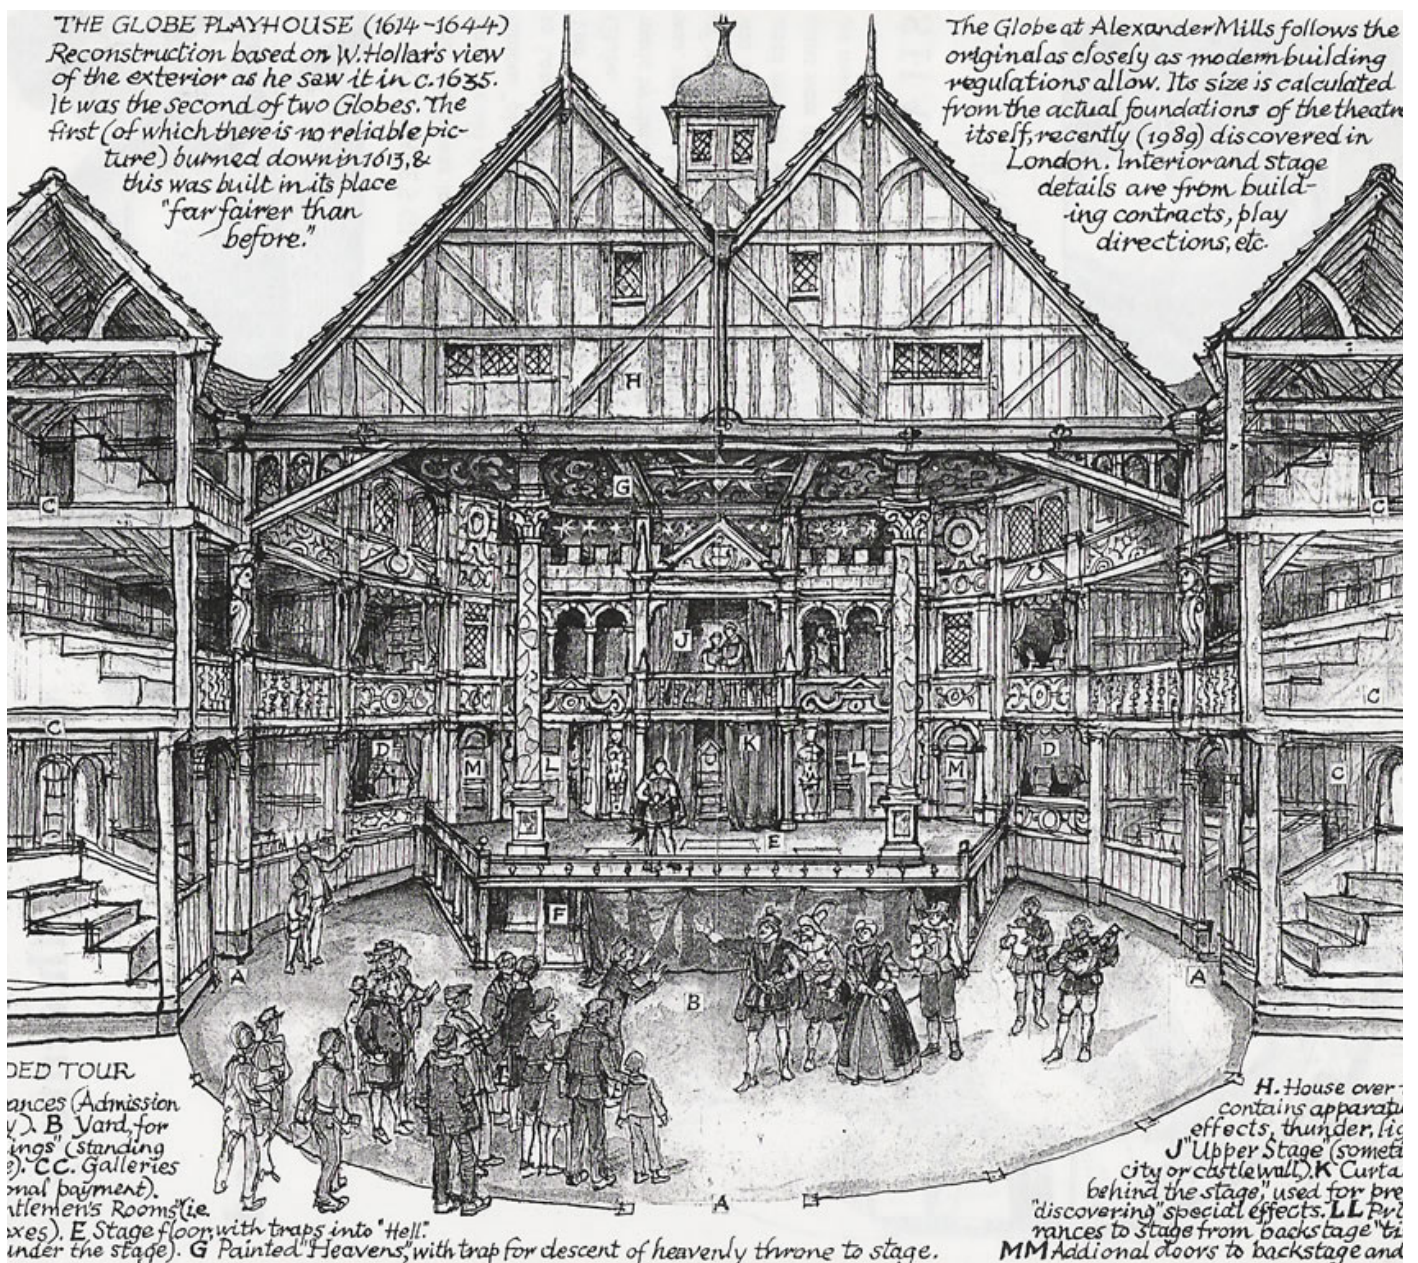 THE GLOBE PLAYHOUSE (1614-1644)
Reconstruction based on W. Hollar's view
of the exterior as he saw it in c.1635.
It was the second of two Globes. The
first (of which there is no reliable pic-
ture) burned down in 1613, &
this was built in its place
"far fairer than
before."
The Globe at Alexander Mills follows the
original as closely as modern building
regulations allow. Its size is calculated
from the actual foundations of the theatre
itself, recently (1989) discovered in
London. Interior and stage
details are from build-
-ing contracts, play
directions, etc.
H
G
C
C
J
C
C
D
M
L
K
L
M
D
C
E
F
A
B
A
A
DED TOUR
ances (Admission
y). B Yard, for
ings" (standing
e). CC. Galleries
onal payment).
ntlemen's Rooms "(i.e.
oxes). E Stage floor, with traps into "Hell".
under the stage). G Painted "Heavens", with trap for descent of heavenly throne to stage.
H. House over
contains apparatu
effects, thunder, lig
J "Upper Stage" (someti
city or castle wall). K Curta
behind the stage," used for pre
"discovering" special effects. LL Pri
rances to stage from backstage "ti
MM Addional doors to backstage and